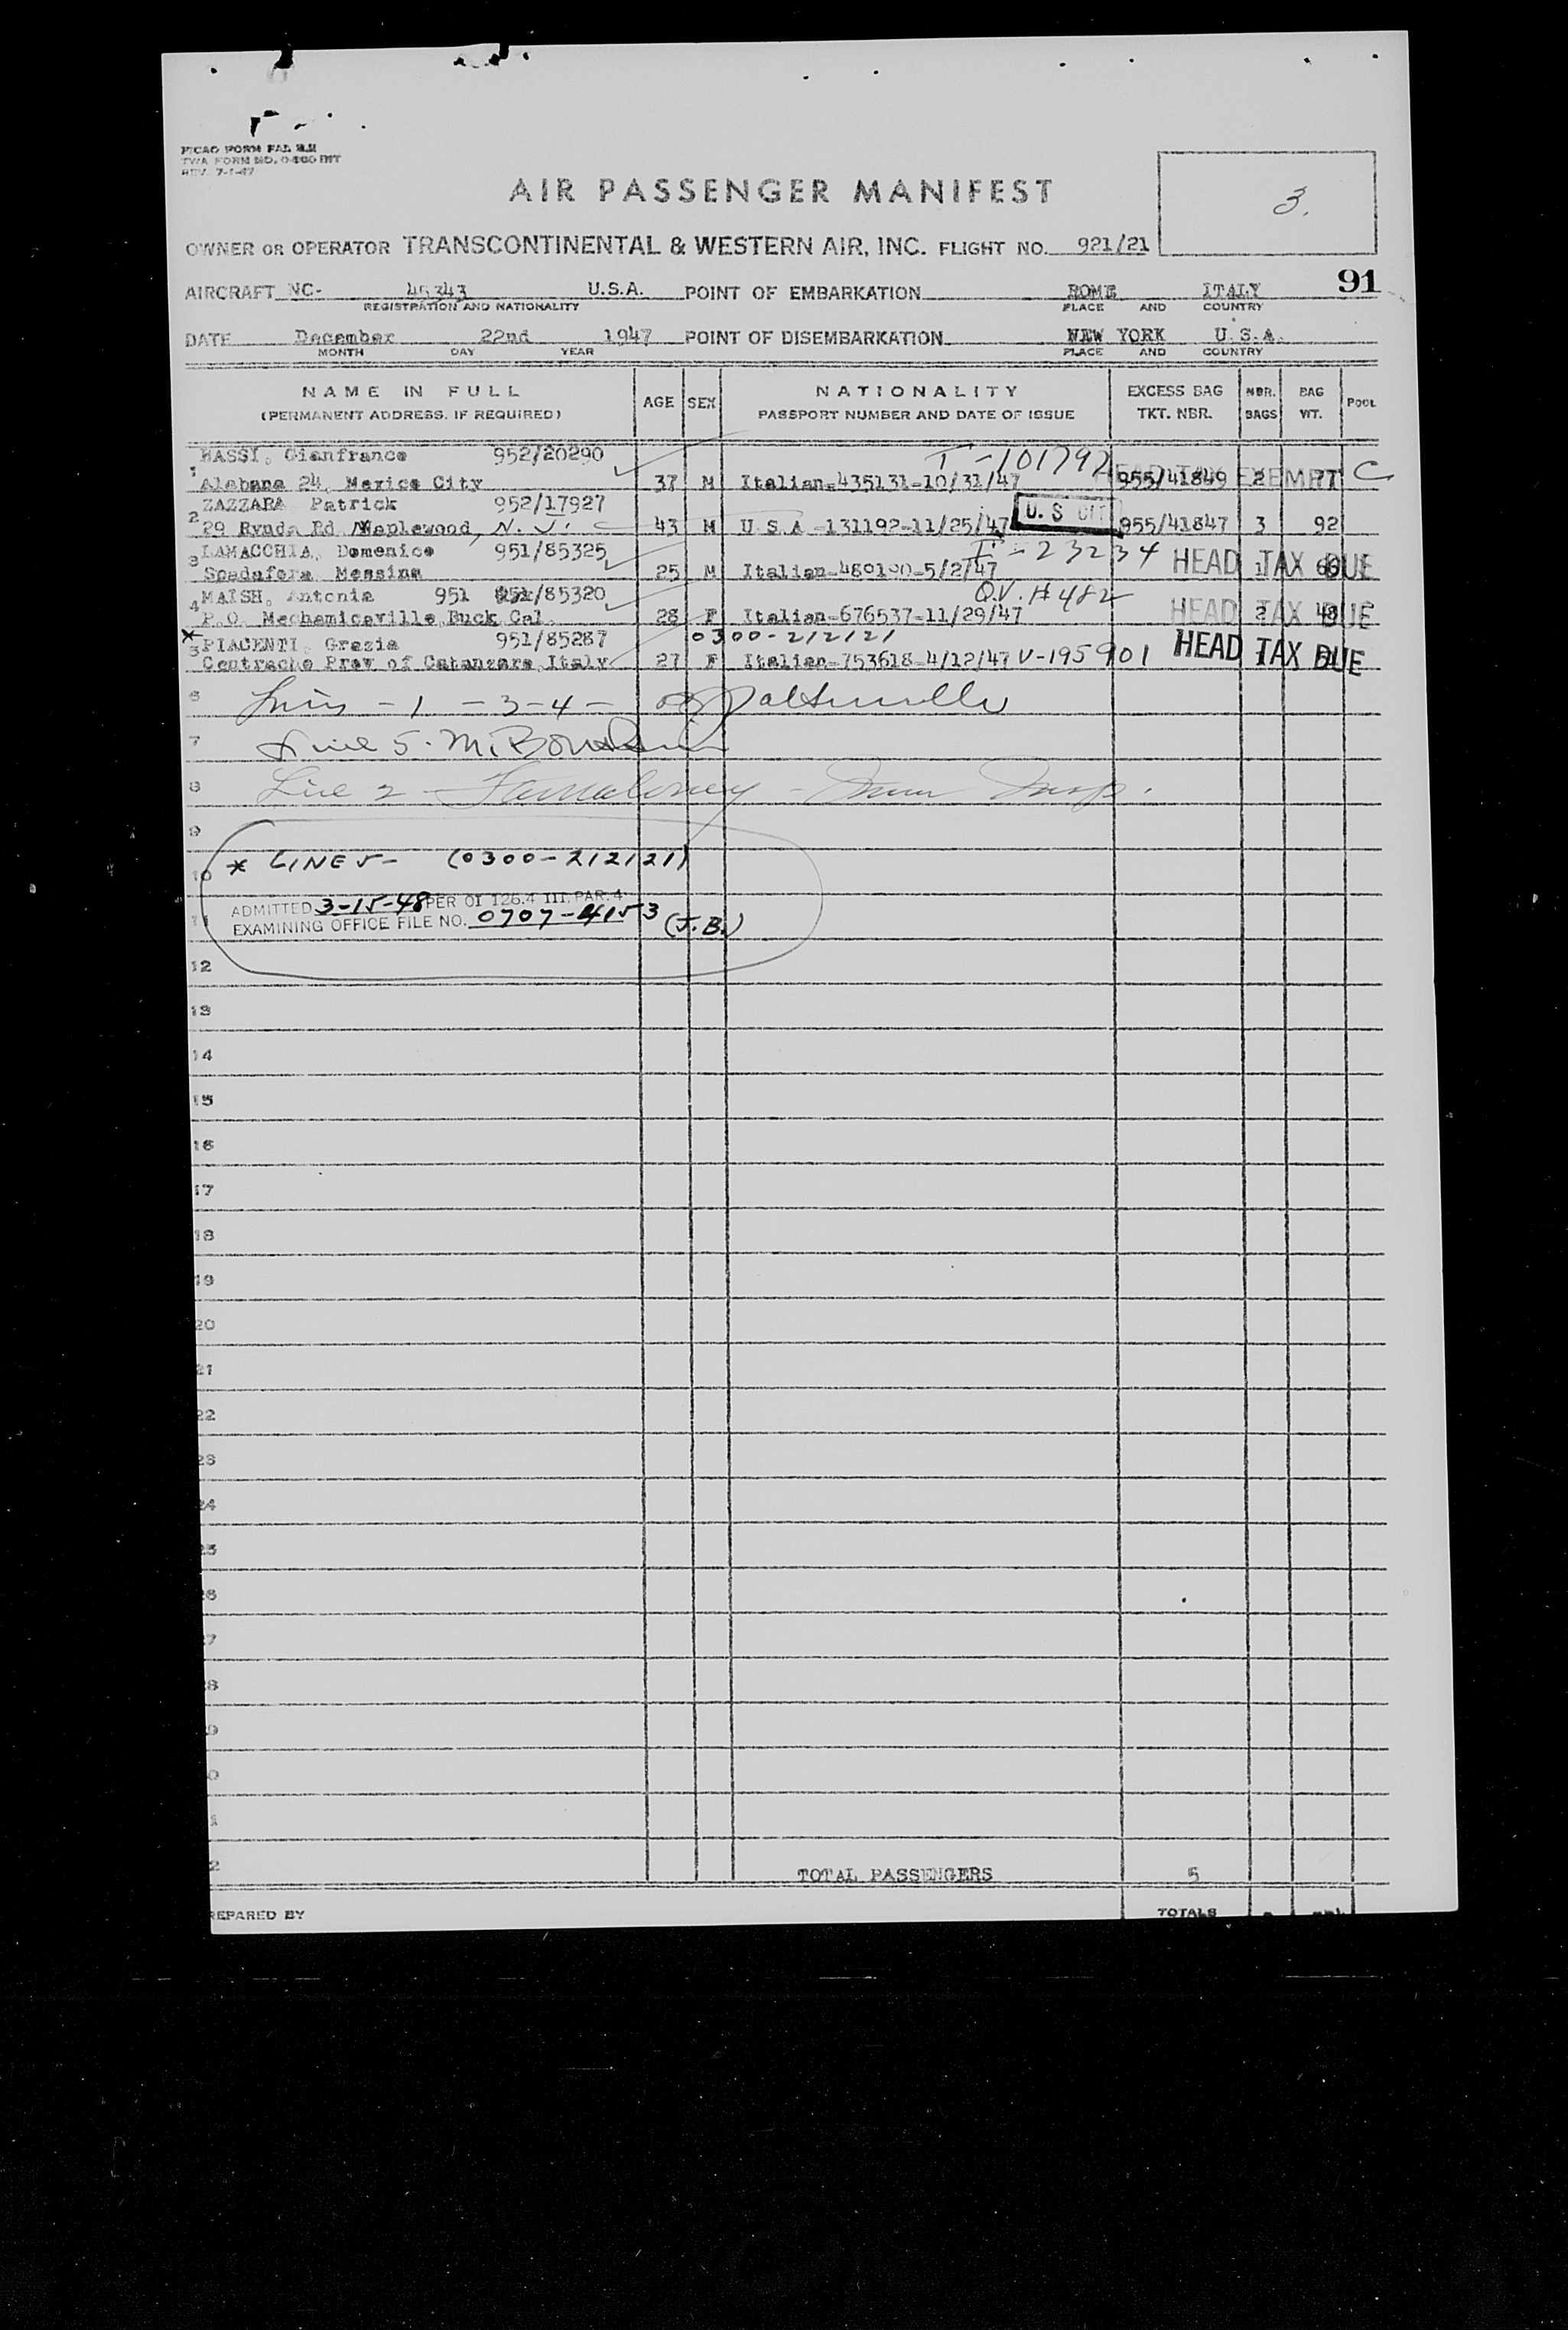 TWA FORM NO. 0-260 INT
REV. 7-1-47
AIR PASSENGER MANIFEST
3.
OWNER OR OPERATOR TRANSCONTINENTAL & WESTERN AIR, INC. FLIGHT NO. 921/21
91
AIRCRAFT NC- 45343 U.S.A. POINT OF EMBARKATION ROME ITALY
REGISTRATION AND NATIONALITY PLACE AND COUNTRY
DATE December 22nd 1947 POINT OF DISEMBARKATION NEW YORK U.S.A.
MONTH DAY YEAR PLACE AND COUNTRY
NAME IN FULL AGE SEX NATIONALITY EXCESS BAG NBR. BAG POOL
(PERMANENT ADDRESS, IF REQUIRED) PASSPORT NUMBER AND DATE OF ISSUE TKT. NBR. BAGS WT.
Gianfranco 952/20290 T-101792 HEAD TAX EXEMPT C
1 Alabama 24, Mexico City 37 M Italian-435131-10/31/47 955/41849 2 77
ZAZZARA Patrick 952/17927 U.S CIT
2 29 Rynda Rd Maplewood, N.J. 43 M U S A -131192-11/25/47 955/41847 3 92
3 LAMACCHIA, Domenico 951/85325 I-23234 HEAD TAX DUE
Spadafora Messina 25 M Italian-480190-5/2/47 1 66
4 MAISH, Antonia 951 951/85320 Q.V. # 482 HEAD TAX DUE
P.O. Mechanicsville Buck Cal. 28 F Italian-676537-11/29/47 2 48
* PIACENTI, Grazia 951/85287 0300-212121 HEAD TAX DUE
5 Centrache Prov of Catanzaro Italy 27 F Italian-753618-4/12/47 V-195901
6 Lines - 1 - 3-4 -
7 Line 5. M.
8 Line 2 - Immn Insp.
9
10 * LINE 5- (0300-212121)
ADMITTED 3-15-48 PER OI 126.4 III. PAR. 4
11 EXAMINING OFFICE FILE NO. 0707-4153 (J.B.)
12
13
14
15
16
17
18
19
20
21
22
23
24
25
6
7
8
9
0
1
2 TOTAL PASSENGERS 5
REPARED BY TOTALS